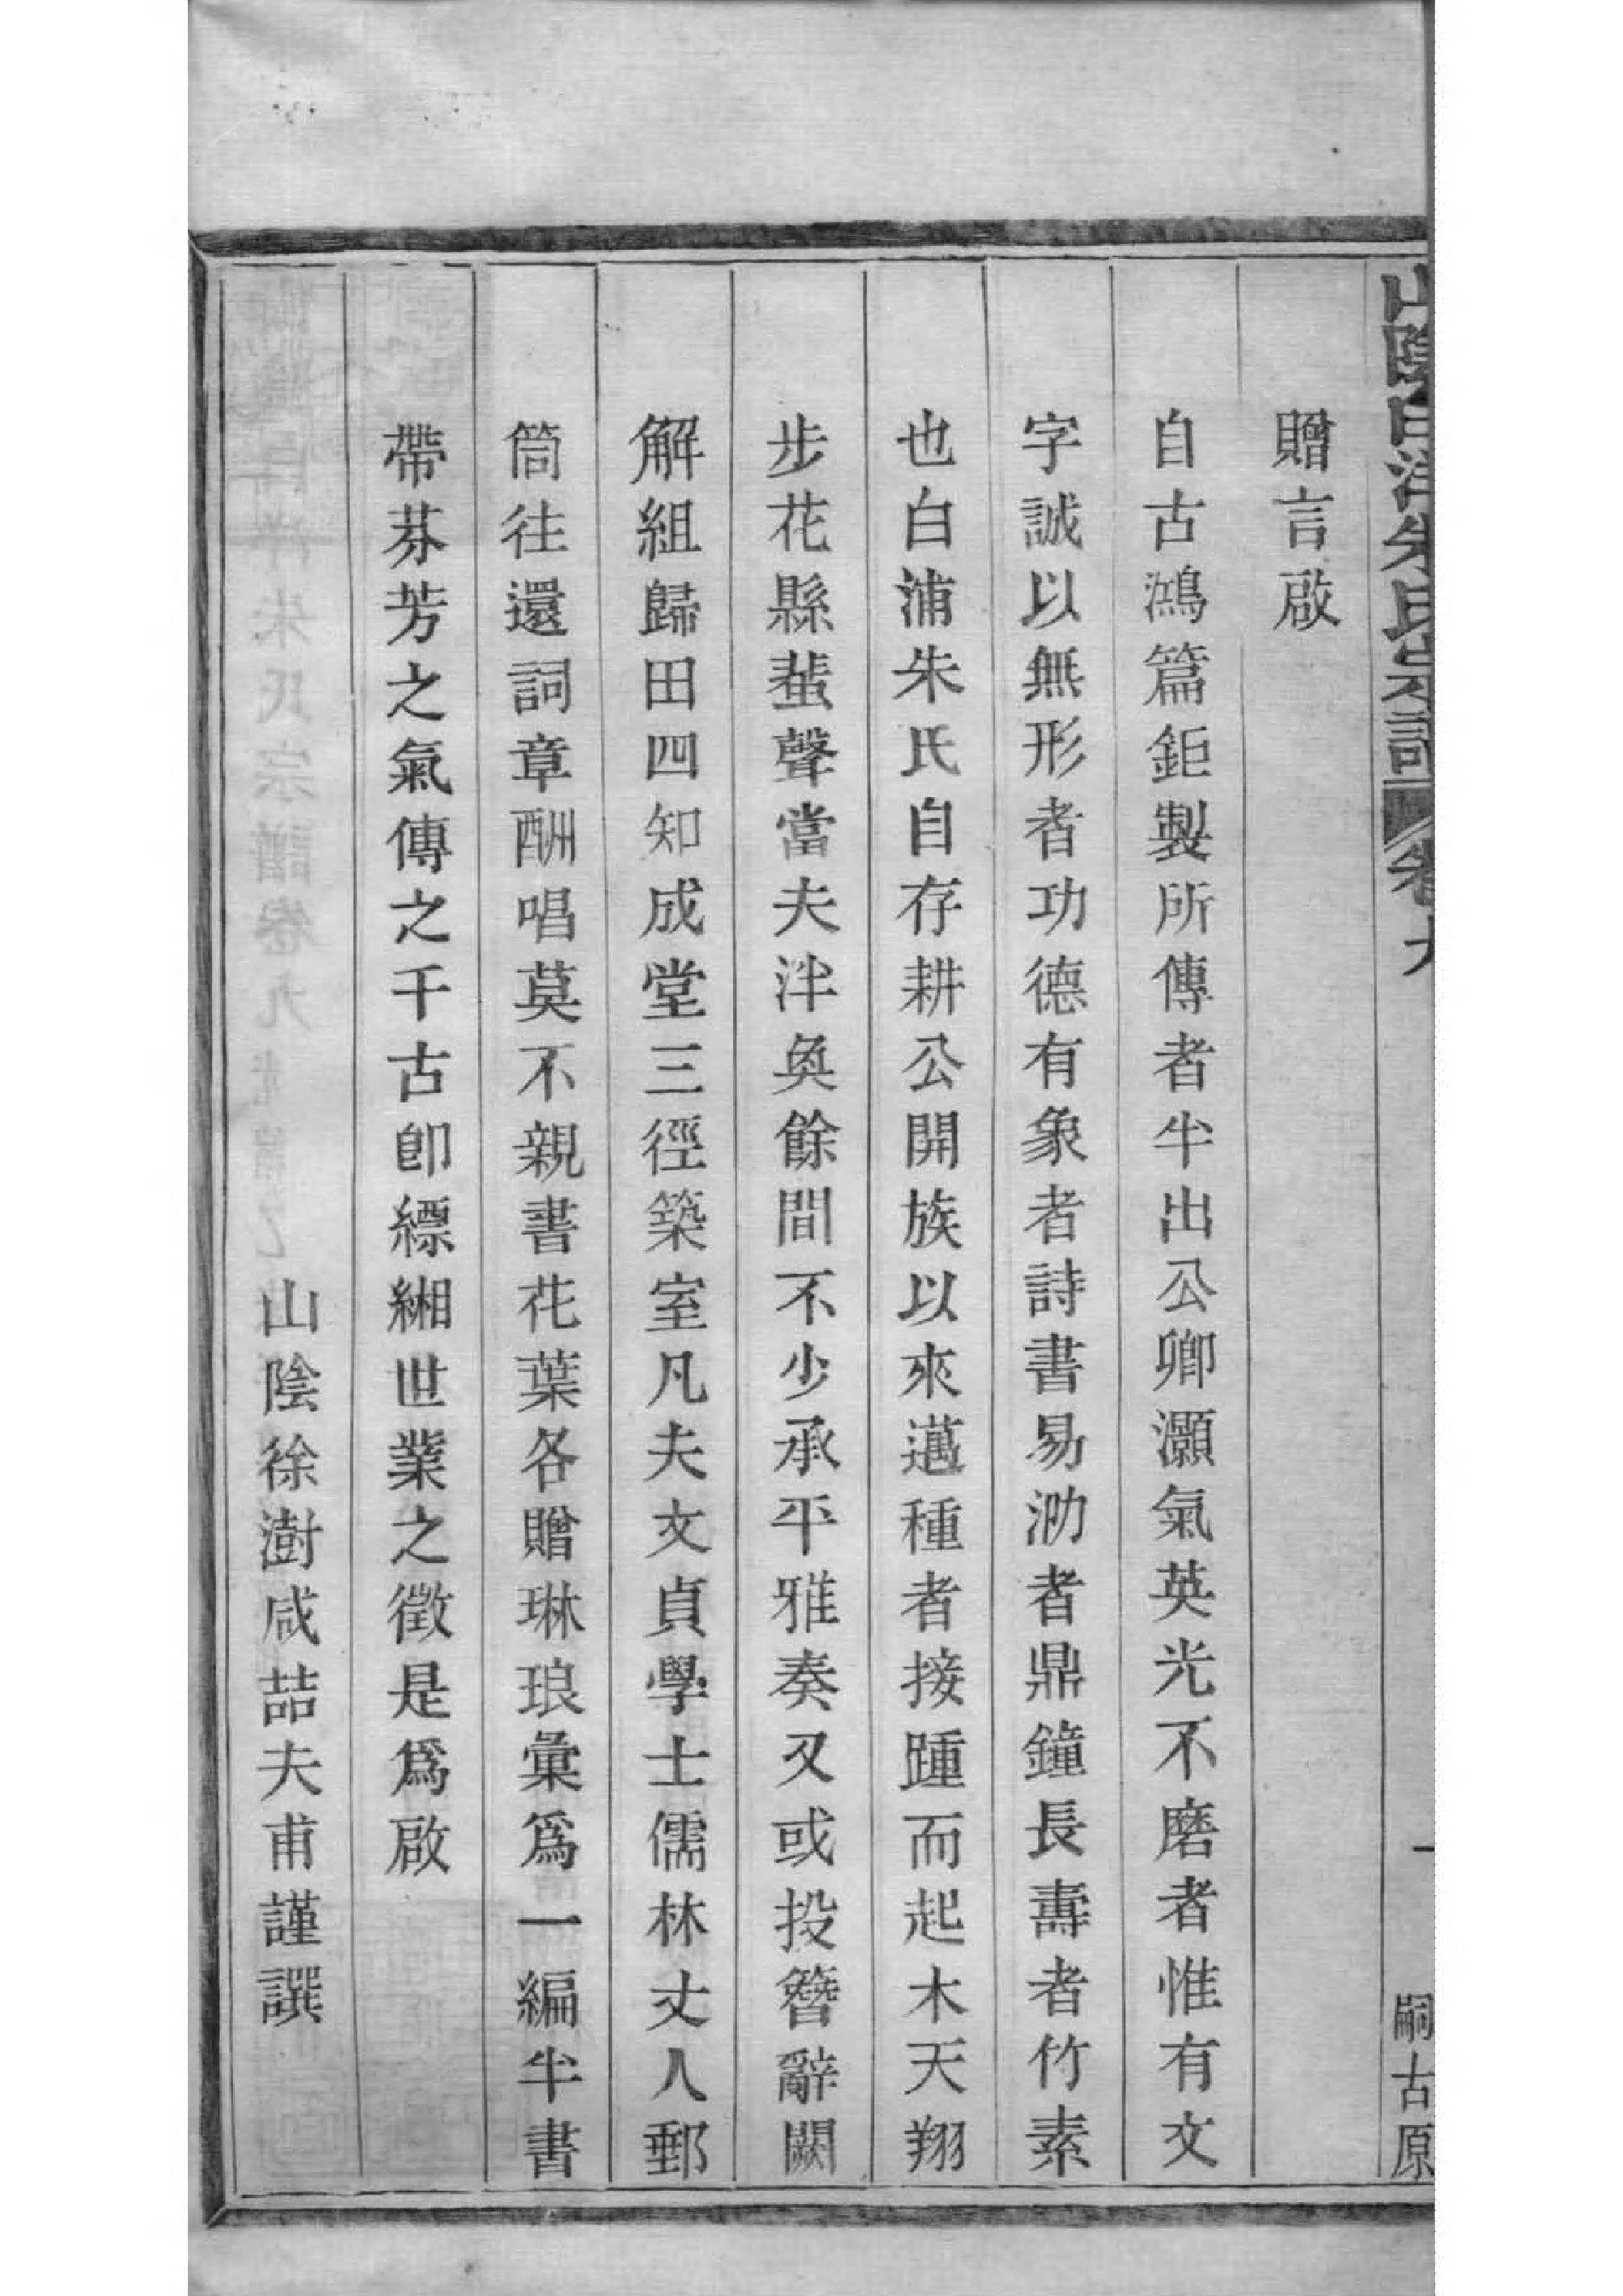 山陰白洋朱氏宗譜 卷九 一 嗣古原
贈言啟
自古鴻篇鉅製所傳者半出公卿灝氣英光不磨者惟有文
字誠以無形者功德有象者詩書易泐者鼎鐘長壽者竹素
也白浦朱氏自存耕公開族以來邁種者接踵而起木天翔
步花縣蜚聲當夫泮奐餘間不少承平雅奏又或投簪辭闕
解組歸田四知成堂三徑築室凡夫文貞學士儒林丈人郵
筒往還詞章酬唱莫不親書花葉各贈琳琅彙為一編半書
帶芬芳之氣傳之千古卽縹緗世業之徵是為啟
山陰徐澍咸喆夫甫謹譔